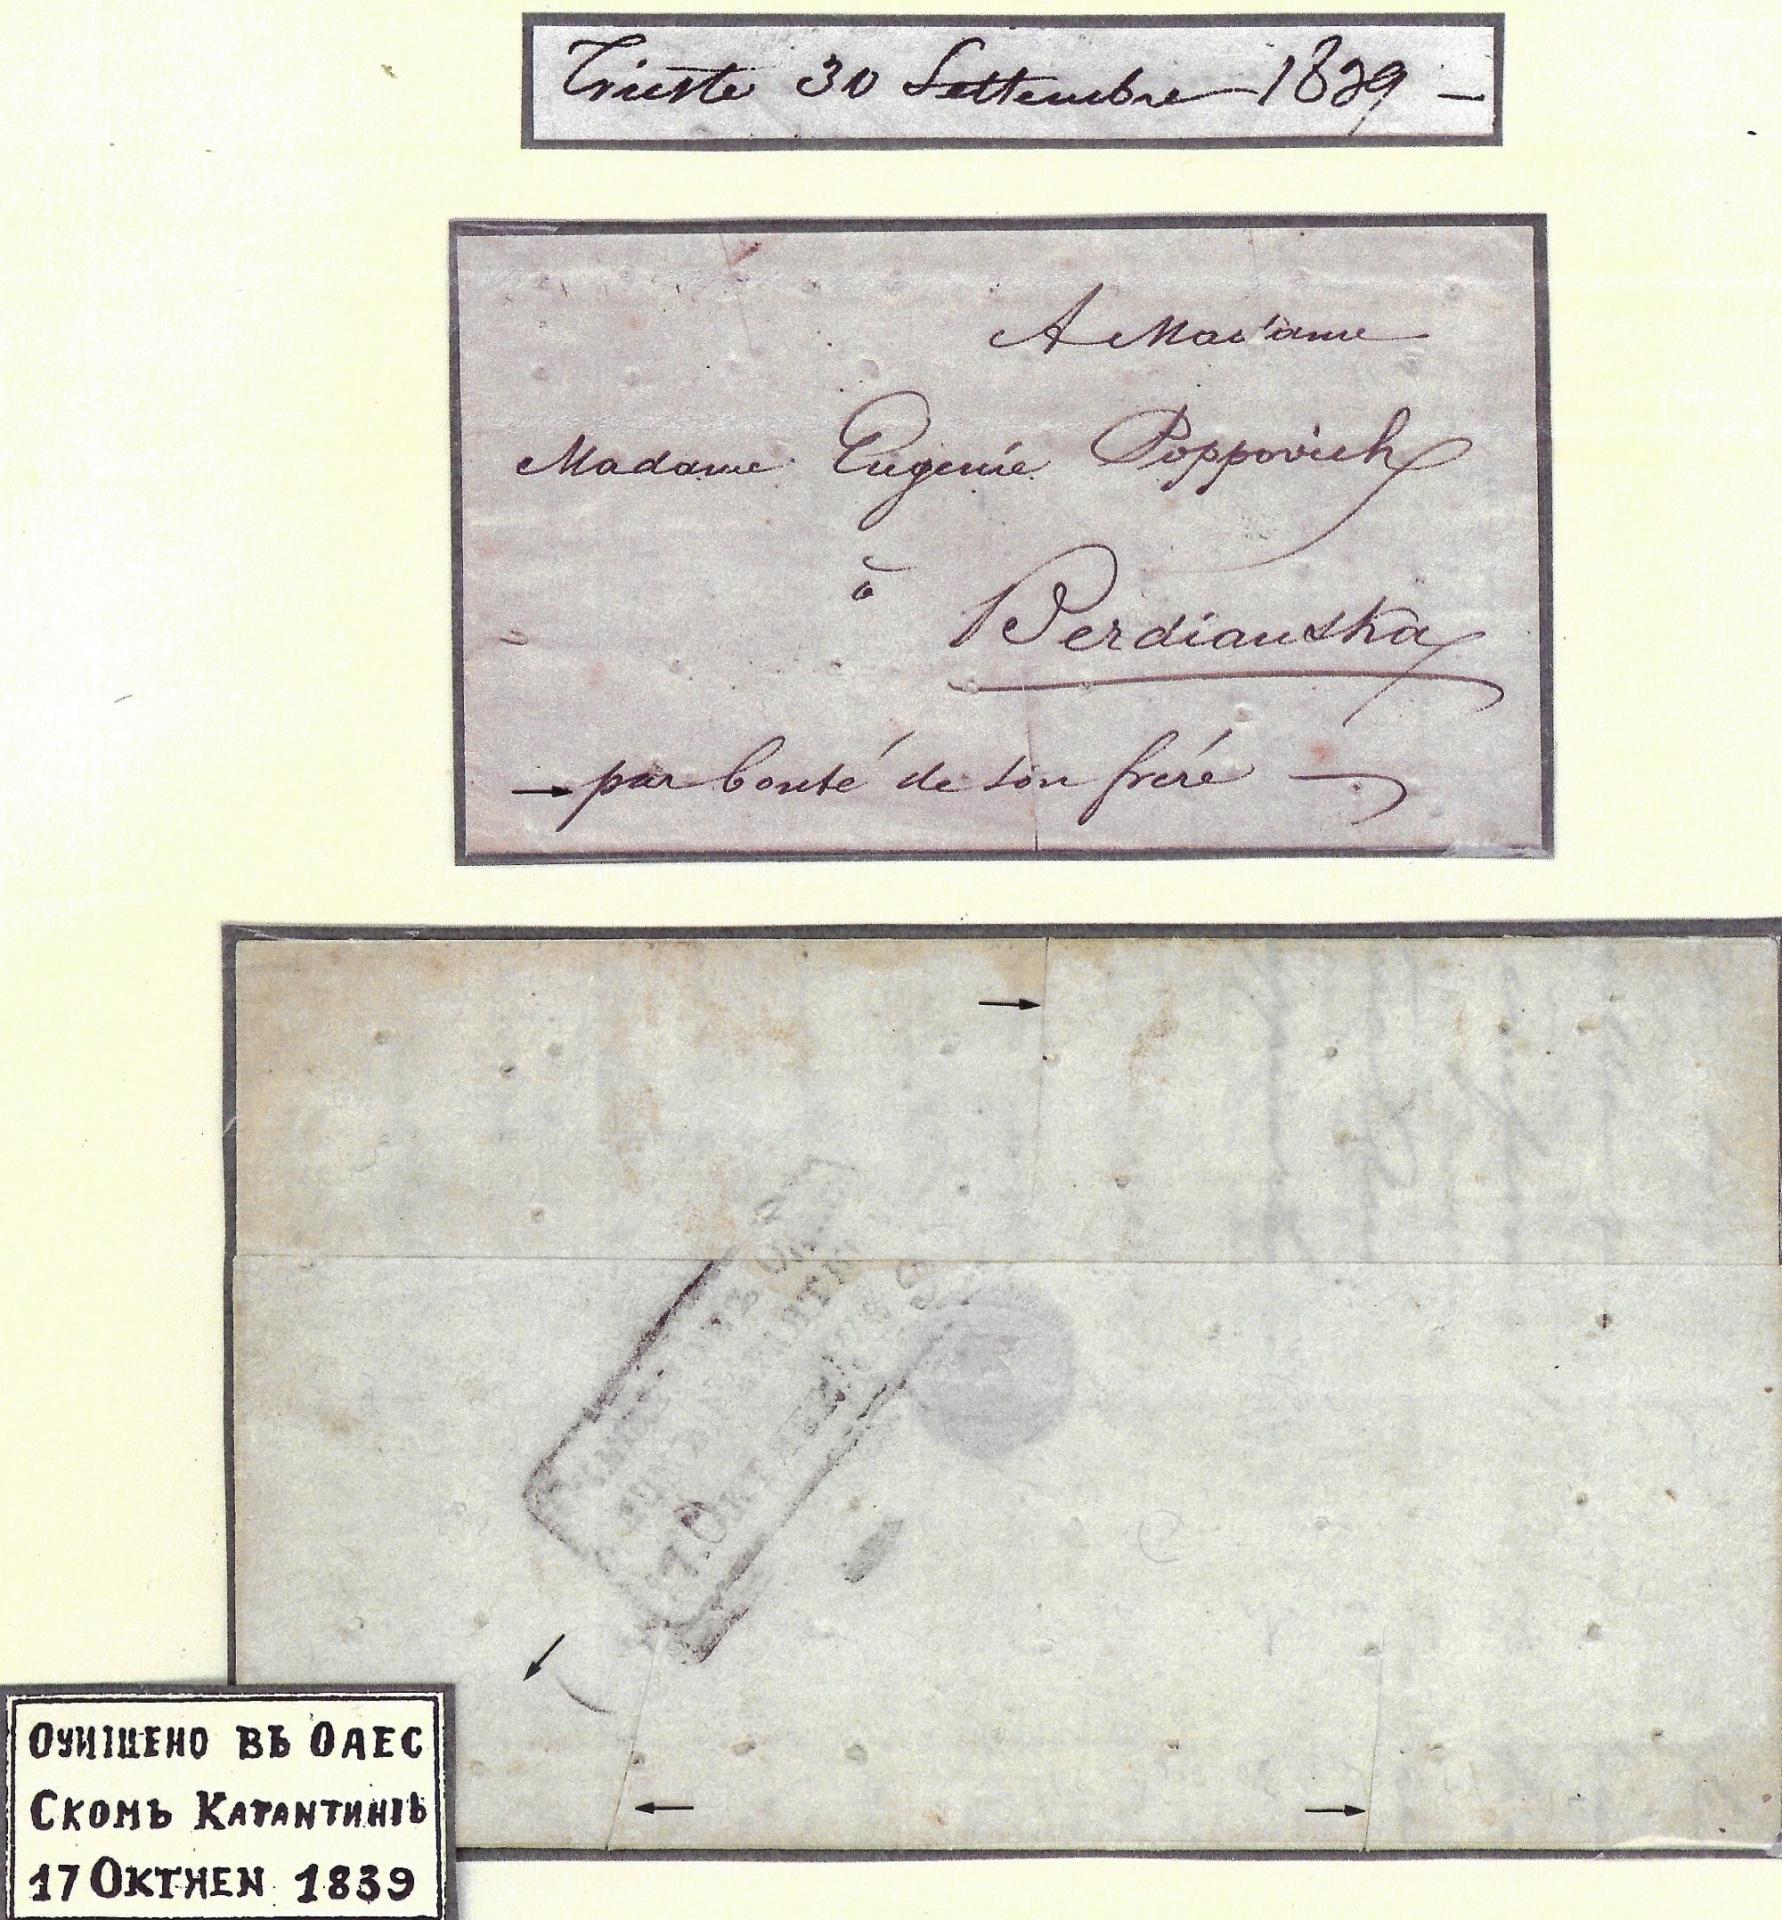 Trieste 30 Settembre 1839 –
A Madame
Madame Eugenie Poppovich
à
Berdianska
par bonté de son fréré
17 ОКТ
ОЧИЩЕНО ВЪ ОДЕС
СКОМЪ КАРАНТИНѢ
17 ОКТЯЕN 1839